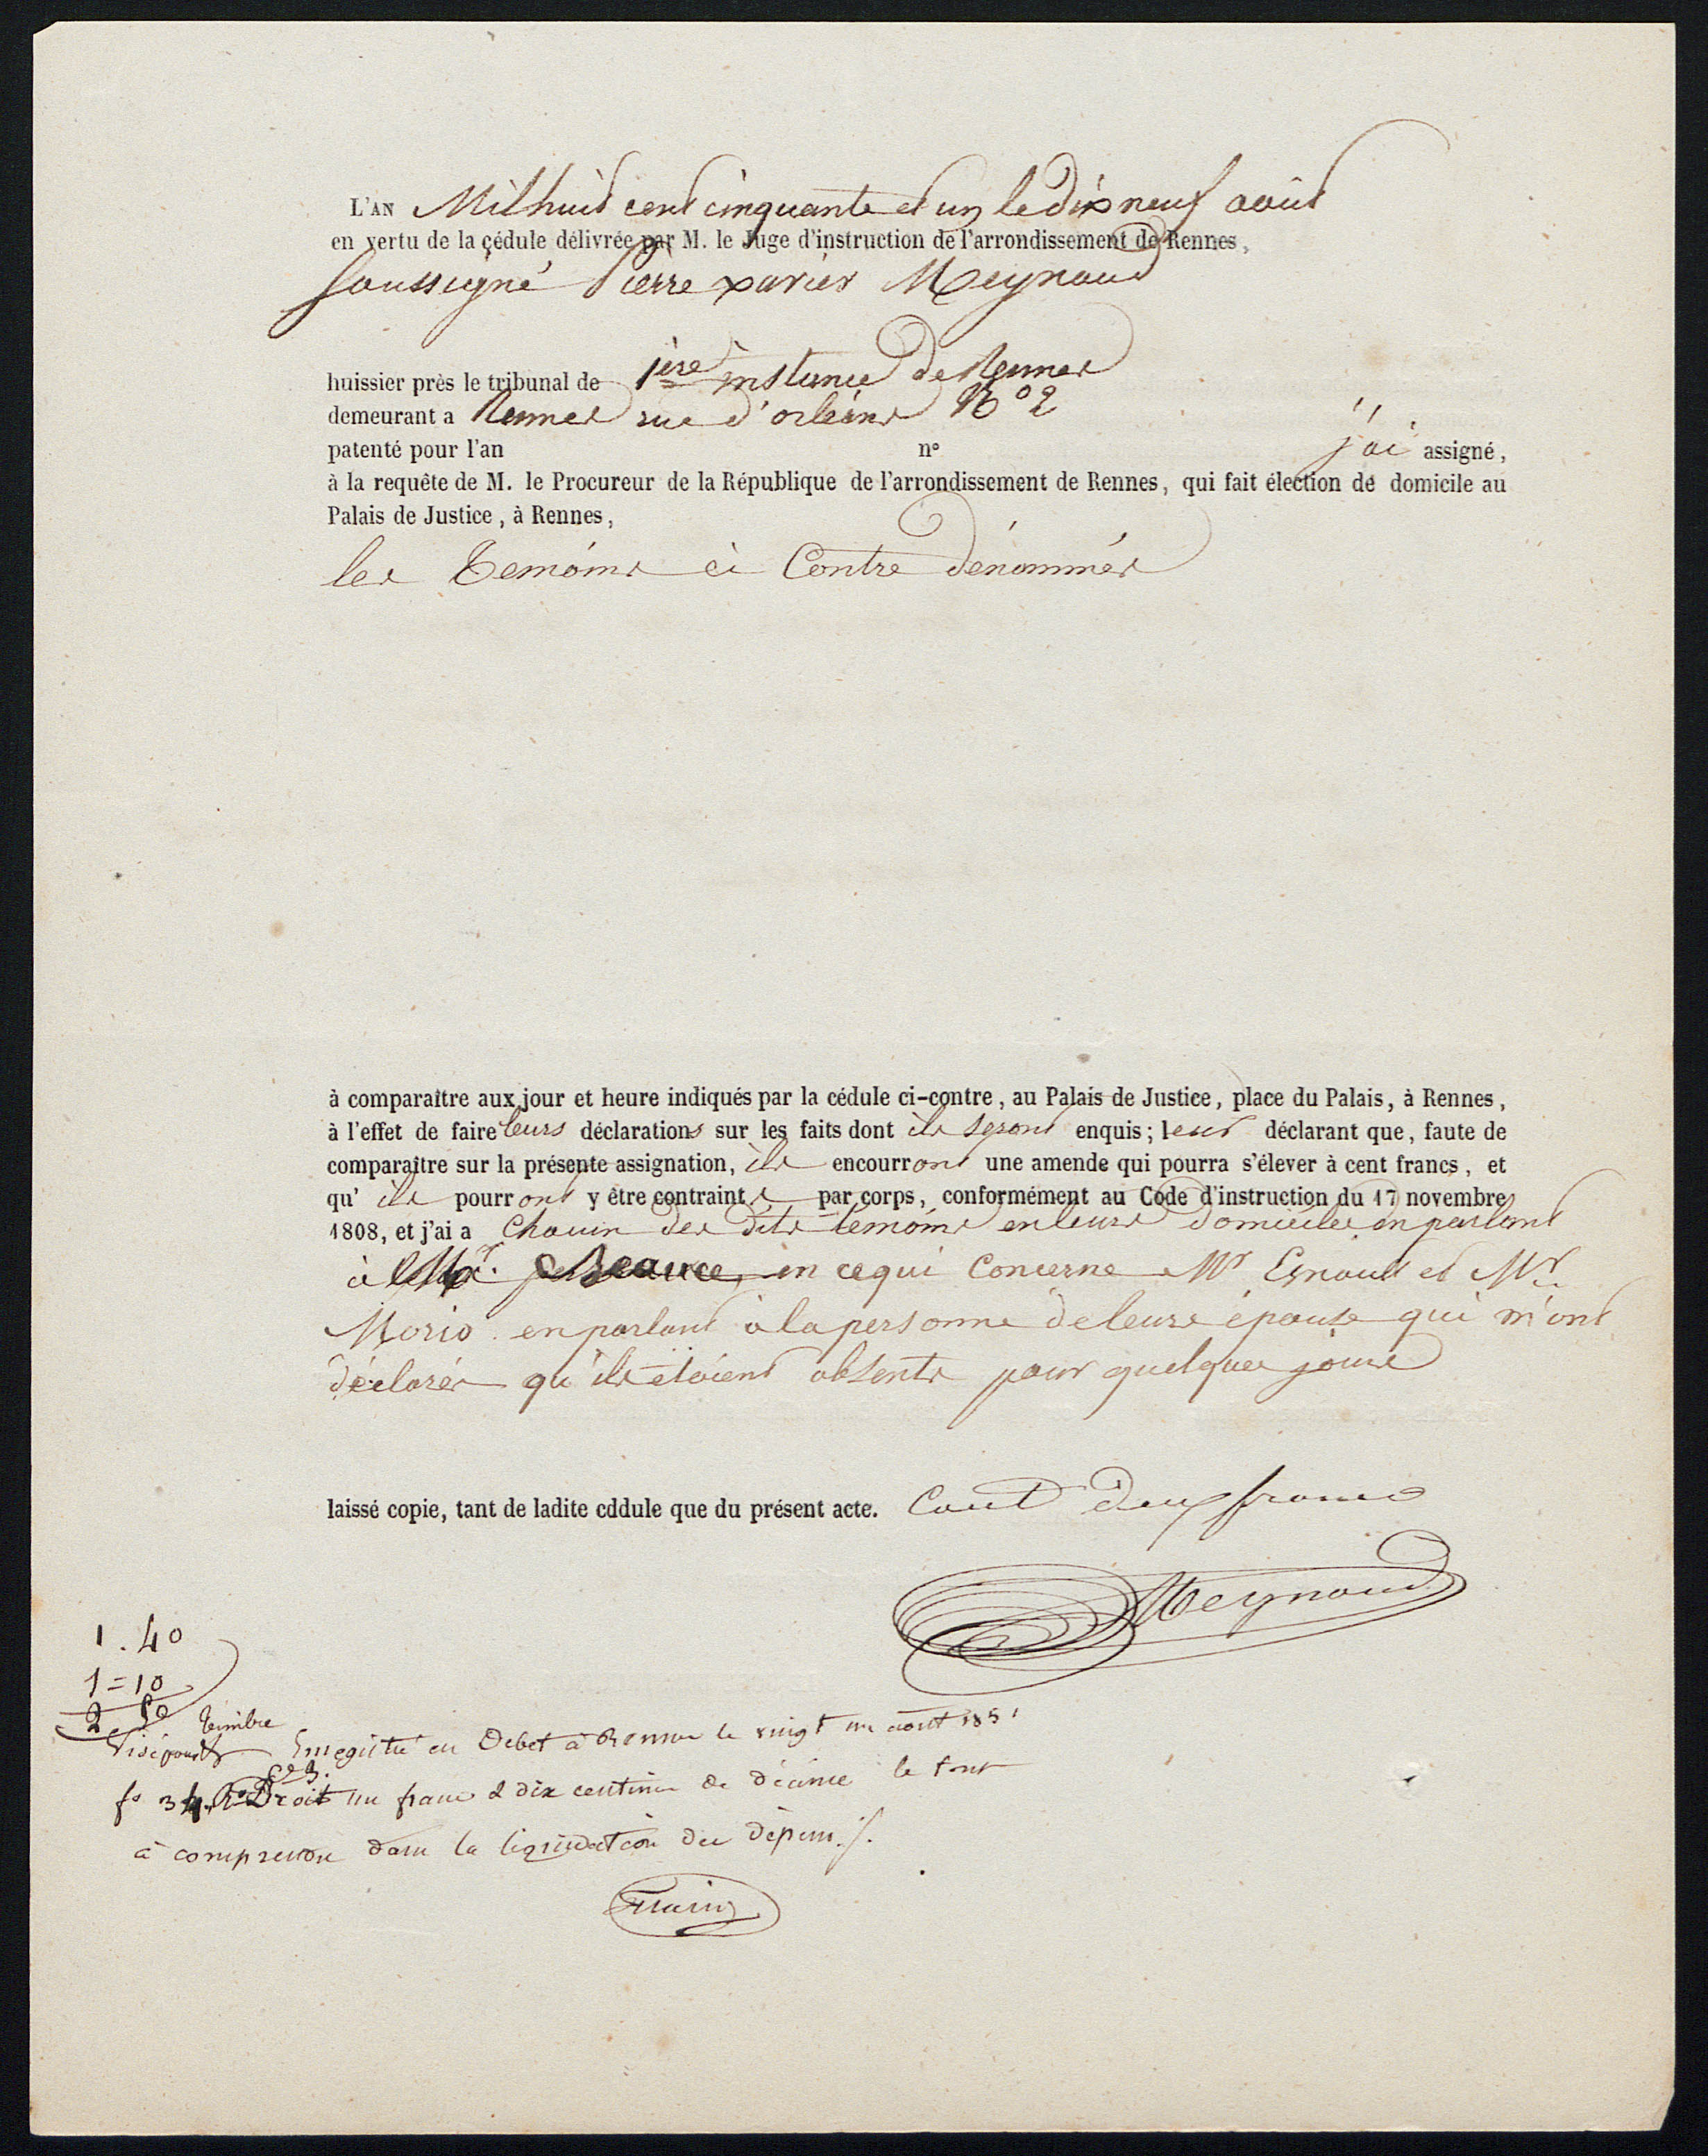 L'AN Mil huit cent cinquante et un le dix neuf août
en vertu de la cédule délivrée par M. le Juge d'instruction de l'arrondissement de Rennes,
Soussigné Pierre xavier Meynaud
huissier près le tribunal de 1ère instance de Rennes
demeurant a Rennes rue d'orléans No 2
patenté pour l'an n° j'ai assigné,
à la requête de M. le Procureur de la République de l'arrondissement de Rennes, qui fait élection de domicile au
Palais de Justice, à Rennes,
les Temoins ci Contre dénommés
à comparaître aux jour et heure indiqués par la cédule ci-contre, au Palais de Justice, place du Palais, à Rennes,
à l'effet de faire leurs déclarations sur les faits dont ils seront enquis; leur déclarant que, faute de
comparaître sur la présente assignation, ils encourront une amende qui pourra s'élever à cent francs, et
qu' ils pourront y être contraints par corps, conformément au Code d'instruction du 17 novembre
1808, et j'ai a Chacun des dits temoins en leurs domiciles en parlant
à en ce qui Concerne Mr Esnault et Mr
Morio en parlant à la personne de leurs épouse qui m'ont
déclarés qu'ils étoient absents pour quelques jours
laissé copie, tant de ladite cddule que du présent acte. Cout deux francs
Meynaud
1.40
1=10
2 50
timbre
Visé pour Enregistré en Debet à Rennes le vingt un août 1851
fo 34 Ro Ce 3. Droit un franc & dix centimes de décime le tout
à comprendre dans la liquidation des dépens ./.